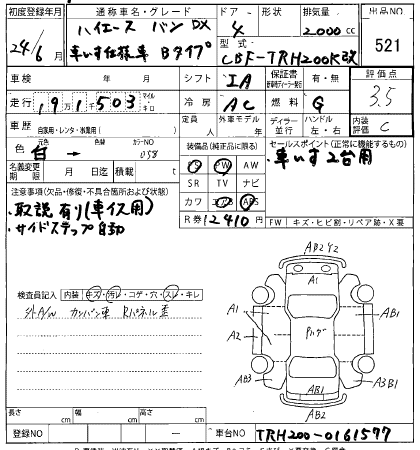 初度登録年月 通称車名・グレード ドア 形状 排気量 出品NO
24/6月 ハイエース バン DX 4 2000cc 521
車いす仕様車 Bタイプ 型式 CBF-TRH200K改
車検 年 月 シフト IA 保証書 有・無 評価点
走行 191503 マイル・キロ 冷房 AC 燃料 G 3.5
車歴 自家用・レンタ・事業用( ) 定員 外車モデル年 ディーラー・並行 ハンドル 左・右 内装評価 C
色 元色 白 → 色替 カラーNO 058
装備品(純正品に限る) セールスポイント(正常に機能するもの)
名義変更期限 月 日迄 積載 t PS PW AW ・車いす2台用
注意事項(欠品・修復・不具合箇所および状態) SR TV ナビ
・取説有り(車イス用) カワ エアB ABS
・サイドステップ自動 R券 12410円 FW キズ・ヒビ割・リペア跡・X要
検査員記入 内装 キズ・汚レ・コゲ・穴・スレ・キレ
外A/W カンバン車 Rパネル歪
AB2Y2
A1
A1
AB1
A2
AB3
A3B1
AB1
AB2
長さ cm 幅 cm 高さ cm
登録NO 車台NO TRH200-0161577